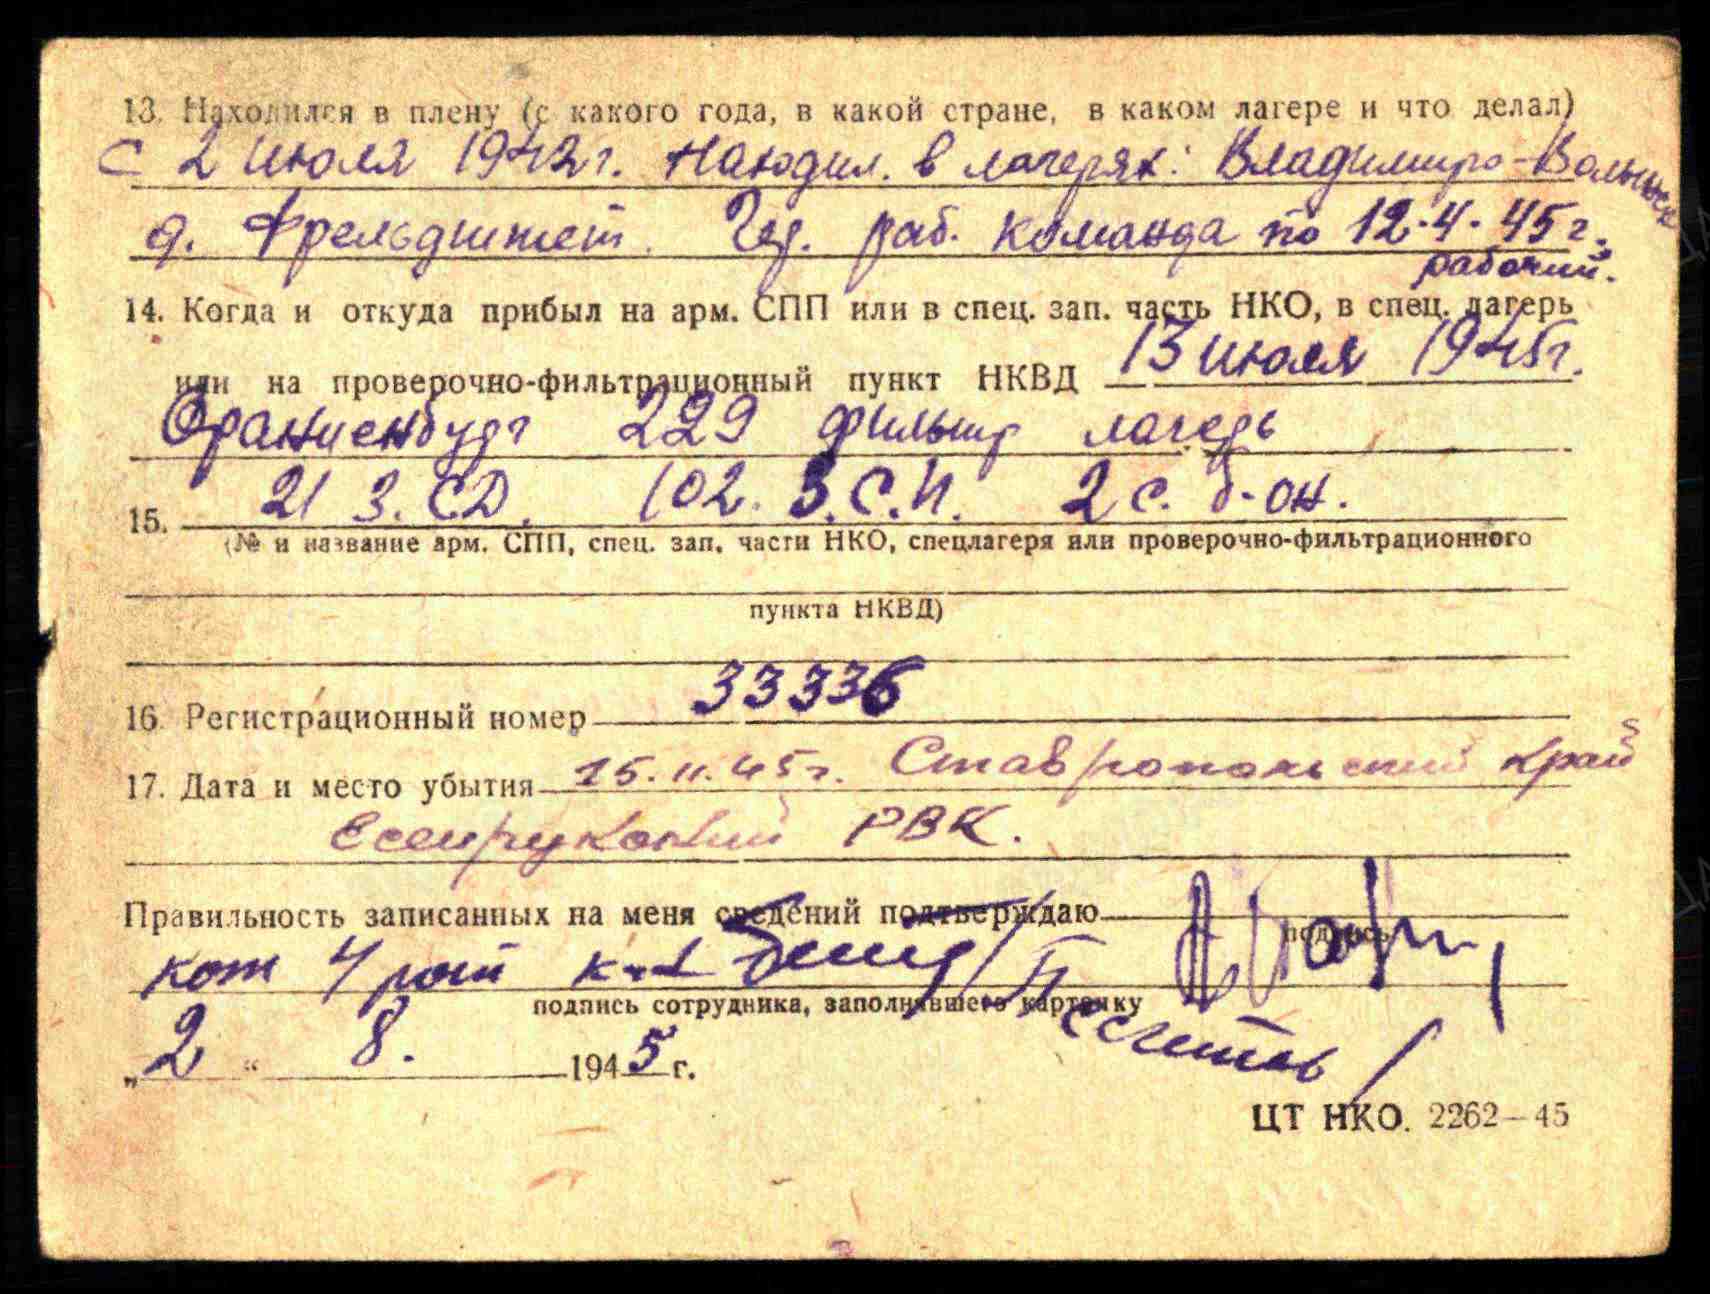 13. Находился в плену (с какого года, в какой стране, в каком лагере и что делал)
с 2 июля 1942 г. Находил. в лагерях: Владимиро-Волынск
д. раб. команда по 12.4.45 г.
рабочий.
14. Когда и откуда прибыл на арм. СПП или в спец. зап. часть НКО, в спец. лагерь
или на проверочно-фильтрационный пункт НКВД 13 июля 1945 г.
229 фильтр лагерь
15. 21 З.СД. 102. З.С.П. 2 с. б-он.
(№ и название арм. СПП, спец. зап. части НКО, спецлагеря или проверочно-фильтрационного
пункта НКВД)
16. Регистрационный номер 33336
17. Дата и место убытия 15.11.45 г. Ставропольский край
РВК.
Правильность записанных на меня сведений подтверждаю
подпись
ком 4 роты к-н
подпись сотрудника, заполнявшего карточку
„2“ 8. 1945 г.
ЦТ НКО. 2262—45